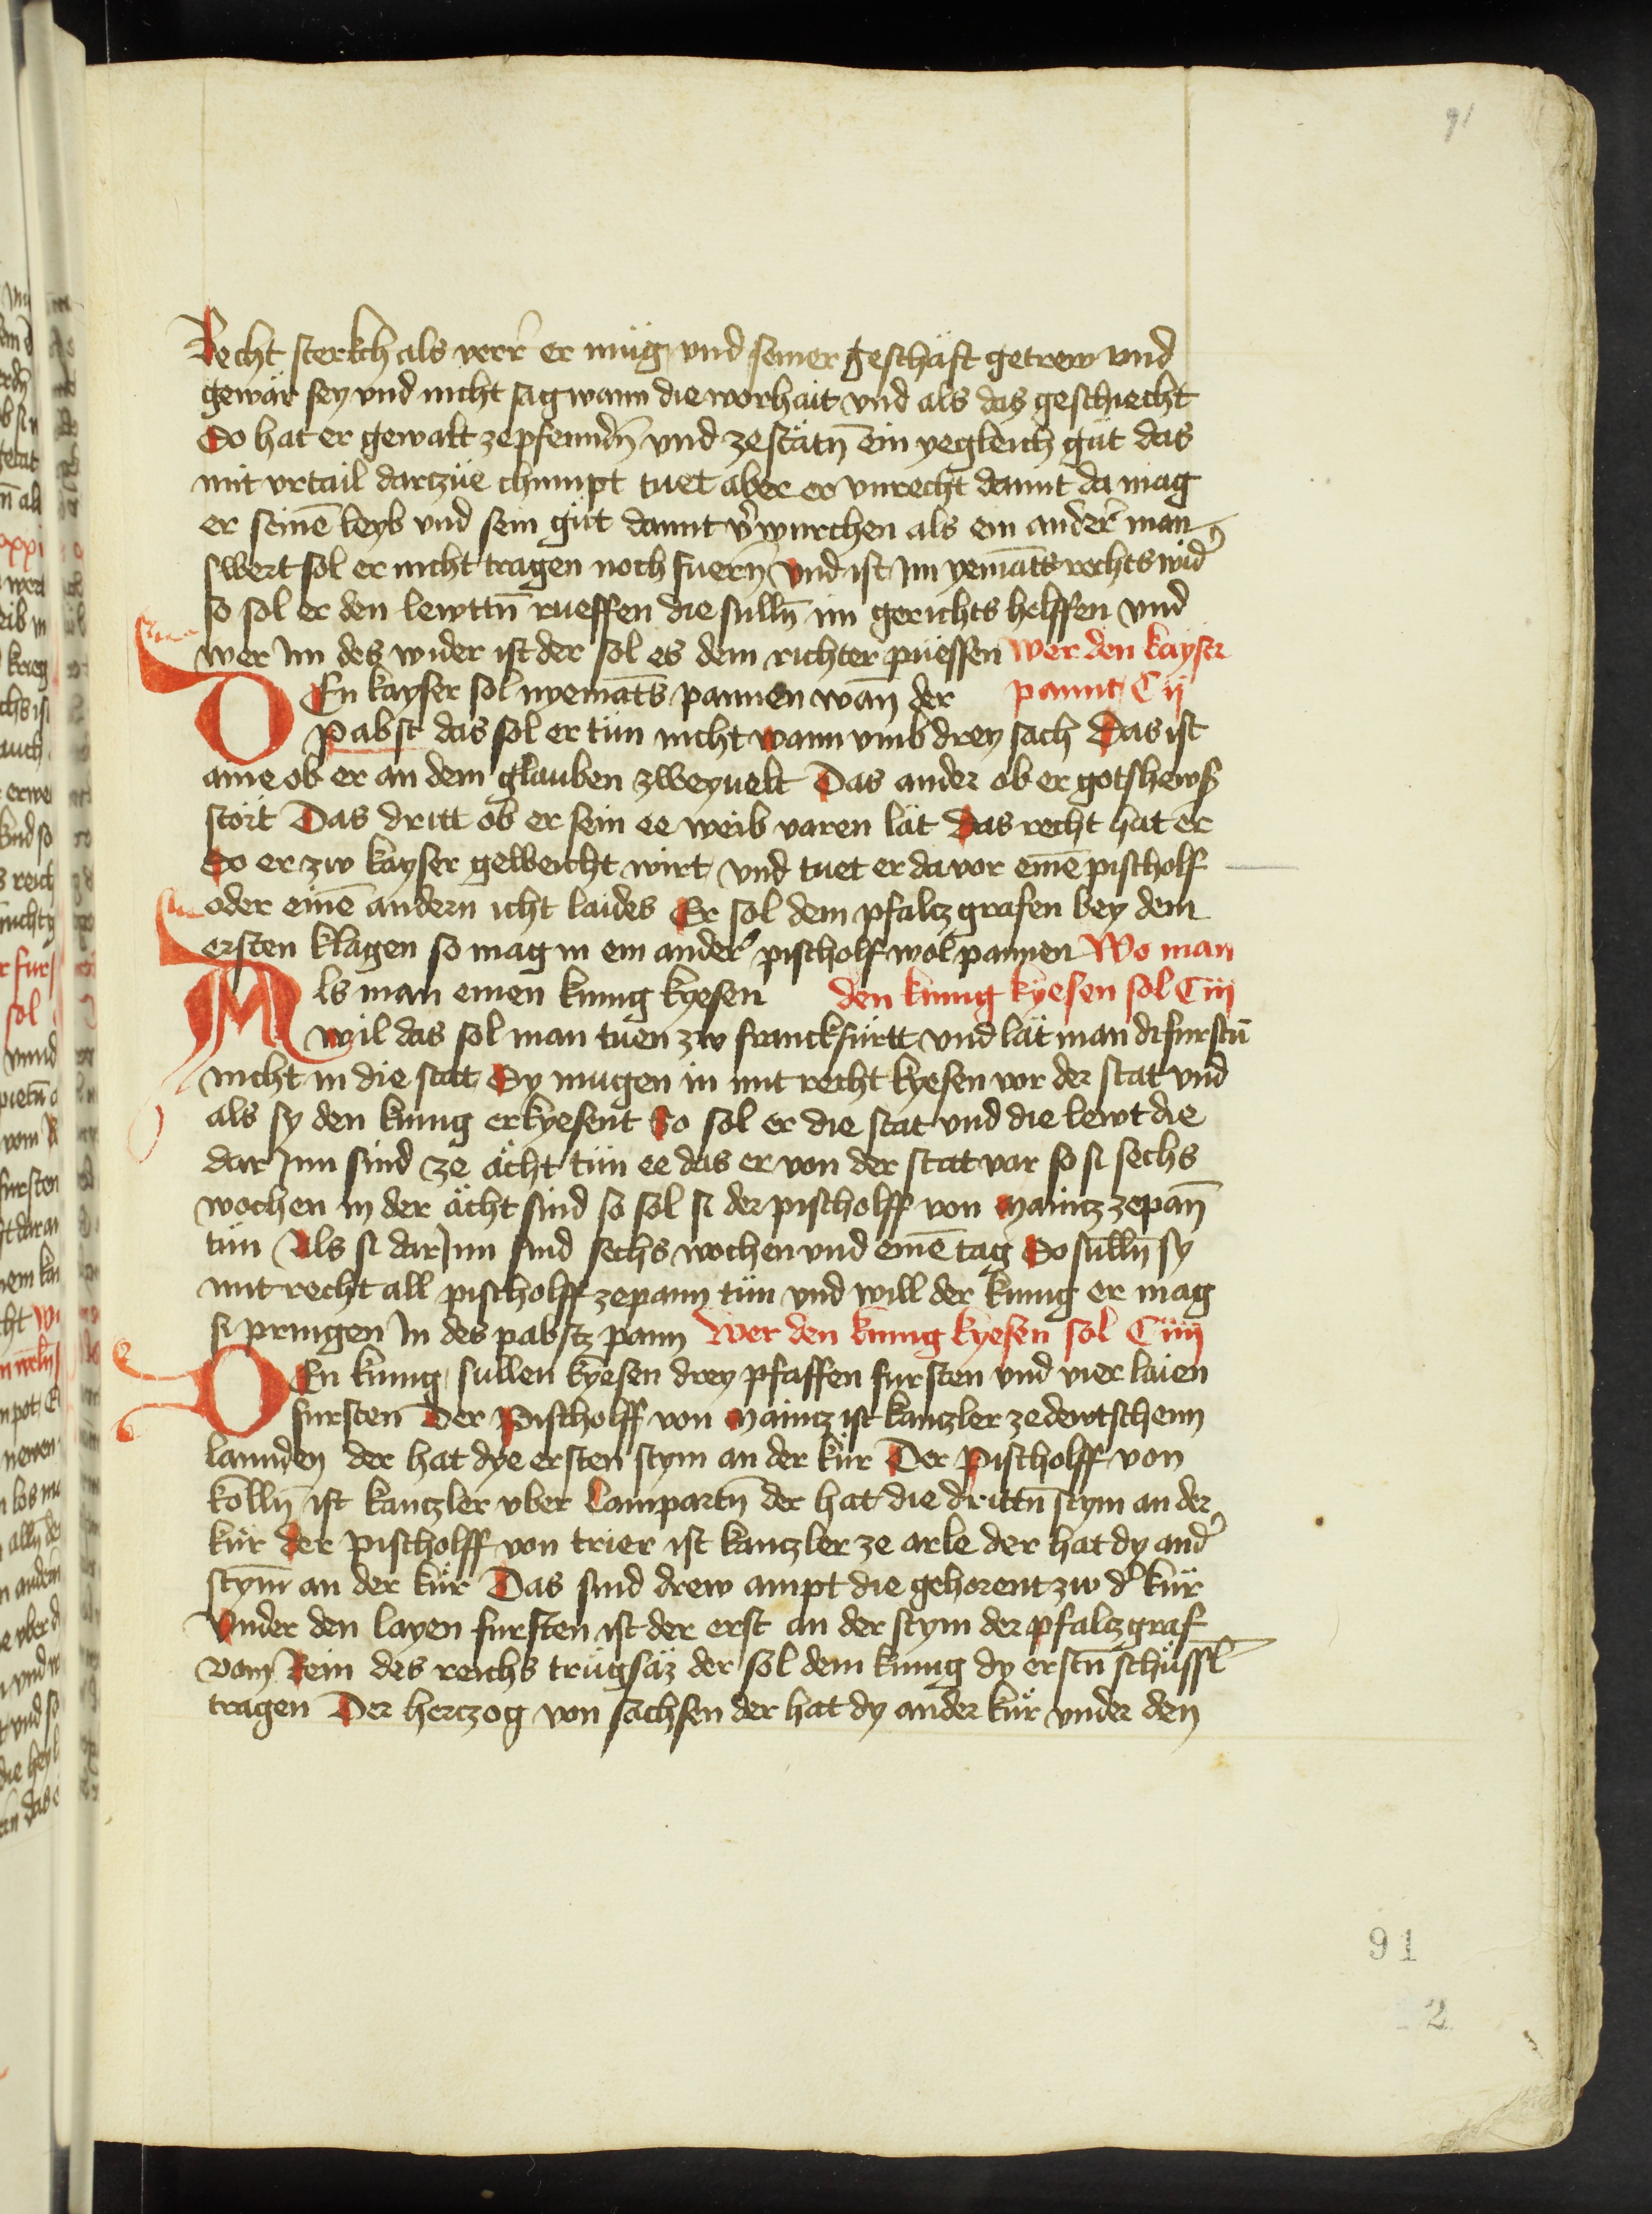 91
Recht sterkch als verr er müg vnd seiner geschäft getrew vnd
gewär sey vnd nicht sag wann die worhait vnd als das geschiecht
So hat er gewalt ze pfenndn̄ vnd ze stätn̄ ein yegleich güt das
mit vrtail darczüe chumpt tuet aber er vnrecht damit da mag
er seinē leyb vnd sein güt damit v̉wurchen als ein ander̉ man
swert sol er nicht tragen noch fuern̄ Vnd ist im yemāts rechts wid̉
so sol er den lewttn̄ rueffen die sulln̄ im gerichts helffen vnd
wer Im des wider ist der sol es dem richter püessen Wer den kayser
DEn kayser sol nyemāts pannen wan̄ der pannt Cij
Pabst das sol er tün nicht wann vmb drey sach Das ist
aine ob er an dem glauben zweyuelt Das ander ob er gotshews
stört Das dritt ob er sein ee weib varen lät Das recht hat er
So er zw kayser geweicht wirt vnd tuet er da vor einē pischolf
oder einē andern icht laides Er sol dem pfalcz grafen bey dem
ersten klagen so mag in ein ander̉ pischolf wol pannen Wo man
Als man einen kunig kyesen den kunig kyesen sol Ciij
wil das sol man tuen zw franckfürtt vnd lät man di furstn̄
nicht in die stat Sy mugen in mit recht kyesen vor der stat vnd
als sy den kunig erkyesent So sol er die stat vnd die lewt die
dar Inn sind ze ächt tün ee das er von der stat var so si sechs
wochen in der ächt sind so sol si der pischolff von Maincz ze pan̄
tün Als si dar Inn sind sechs wochen vnd einē tag So sulln̄ sy
mit recht all pischolff ze pann tün vnd will der kunig er mag
si pringen In des pabstz pann Wer den kunig kyesen sol Ciiij
DEn kunig sullen kyesen drey pfaffen fursten vnd vier laien
fursten Der Pischolff von Maincz ist kanczler ze dewtschenn
lannden der hat dye ersten stym an der kür Der Pischolff von
kölln̄ ist kanczler vber Lampartn̄ der hat die drittn̄ stym an der
kür der Pischolff von trier ist kanczler ze arle der hat dy and̉
stym̄ an der kür Das sind drew ampt die gehorent zw d̉ kür
Vnder den layen fursten ist der erst an der stym der pfalczgraf
vom Rein des reichs trugsäz der sol dem kunig dy erstn̄ schüssl
tragen Der herczog von sachsen der hat dy ander kür vnder den
91
2